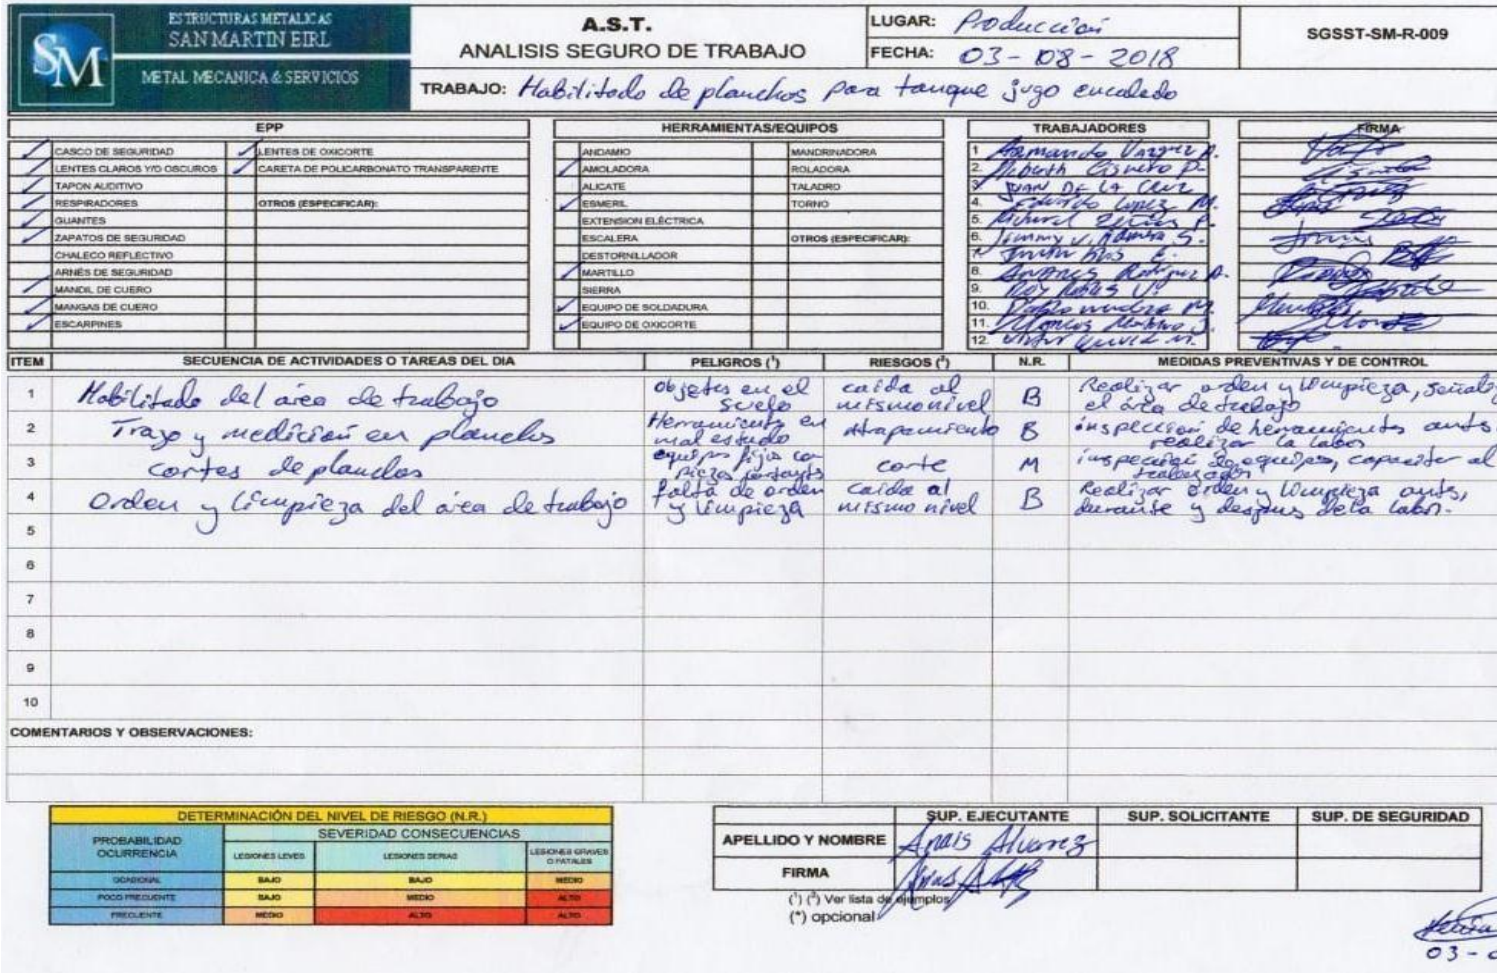 ESTRUCTURAS METALICAS
SAN MARTIN EIRL
SM
METAL MECANICA & SERVICIOS
A.S.T.
ANALISIS SEGURO DE TRABAJO
LUGAR: Producción
FECHA: 03-08-2018
SGSST-SM-R-009
TRABAJO: Habilitado de planchas para tanque jugo encalado
EPP
CASCO DE SEGURIDAD LENTES DE OXICORTE
LENTES CLAROS Y/O OSCUROS CARETA DE POLICARBONATO TRANSPARENTE
TAPON AUDITIVO
RESPIRADORES OTROS (ESPECIFICAR):
GUANTES
ZAPATOS DE SEGURIDAD
CHALECO REFLECTIVO
ARNÉS DE SEGURIDAD
MANDIL DE CUERO
MANGAS DE CUERO
ESCARPINES
HERRAMIENTAS/EQUIPOS
ANDAMIO MANDRINADORA
AMOLADORA ROLADORA
ALICATE TALADRO
ESMERIL TORNO
EXTENSION ELÉCTRICA
ESCALERA OTROS (ESPECIFICAR):
DESTORNILLADOR
MARTILLO
SIERRA
EQUIPO DE SOLDADURA
EQUIPO DE OXICORTE
TRABAJADORES FIRMA
1 Armando Vazquez
2.
3. JUAN DE LA CRUZ
4. Eduardo Lopez M.
5.
6.
7.
8. Rodriguez
9.
10. Pablo
11. Marcos
12.
ITEM SECUENCIA DE ACTIVIDADES O TAREAS DEL DIA PELIGROS (¹) RIESGOS (²) N.R. MEDIDAS PREVENTIVAS Y DE CONTROL
1 Habilitado del área de trabajo objetos en el suelo caida al mismo nivel B Realizar orden y limpieza, el área de trabajo
2 Trazo y medición en planchas Herramientas en mal estado Atrapamiento B inspección de herramientas antes realizar la labor
3 cortes de planchas equipos fijos con piezas cortantes corte M inspección de equipos, capacitar al trabajador
4 Orden y limpieza del área de trabajo falta de orden y limpieza caida al mismo nivel B Realizar orden y limpieza antes, durante y despues de la labor.
5
6
7
8
9
10
COMENTARIOS Y OBSERVACIONES:
DETERMINACIÓN DEL NIVEL DE RIESGO (N.R.)
PROBABILIDAD OCURRENCIA SEVERIDAD CONSECUENCIAS
LESIONES LEVES LESIONES SERIAS LESIONES GRAVES O FATALES
OCASIONAL BAJO BAJO MEDIO
POCO FRECUENTE BAJO MEDIO ALTO
FRECUENTE MEDIO ALTO ALTO
SUP. EJECUTANTE SUP. SOLICITANTE SUP. DE SEGURIDAD
APELLIDO Y NOMBRE Anais Alvarez
FIRMA
(¹) (²) Ver lista de ejemplos
(*) opcional
03-